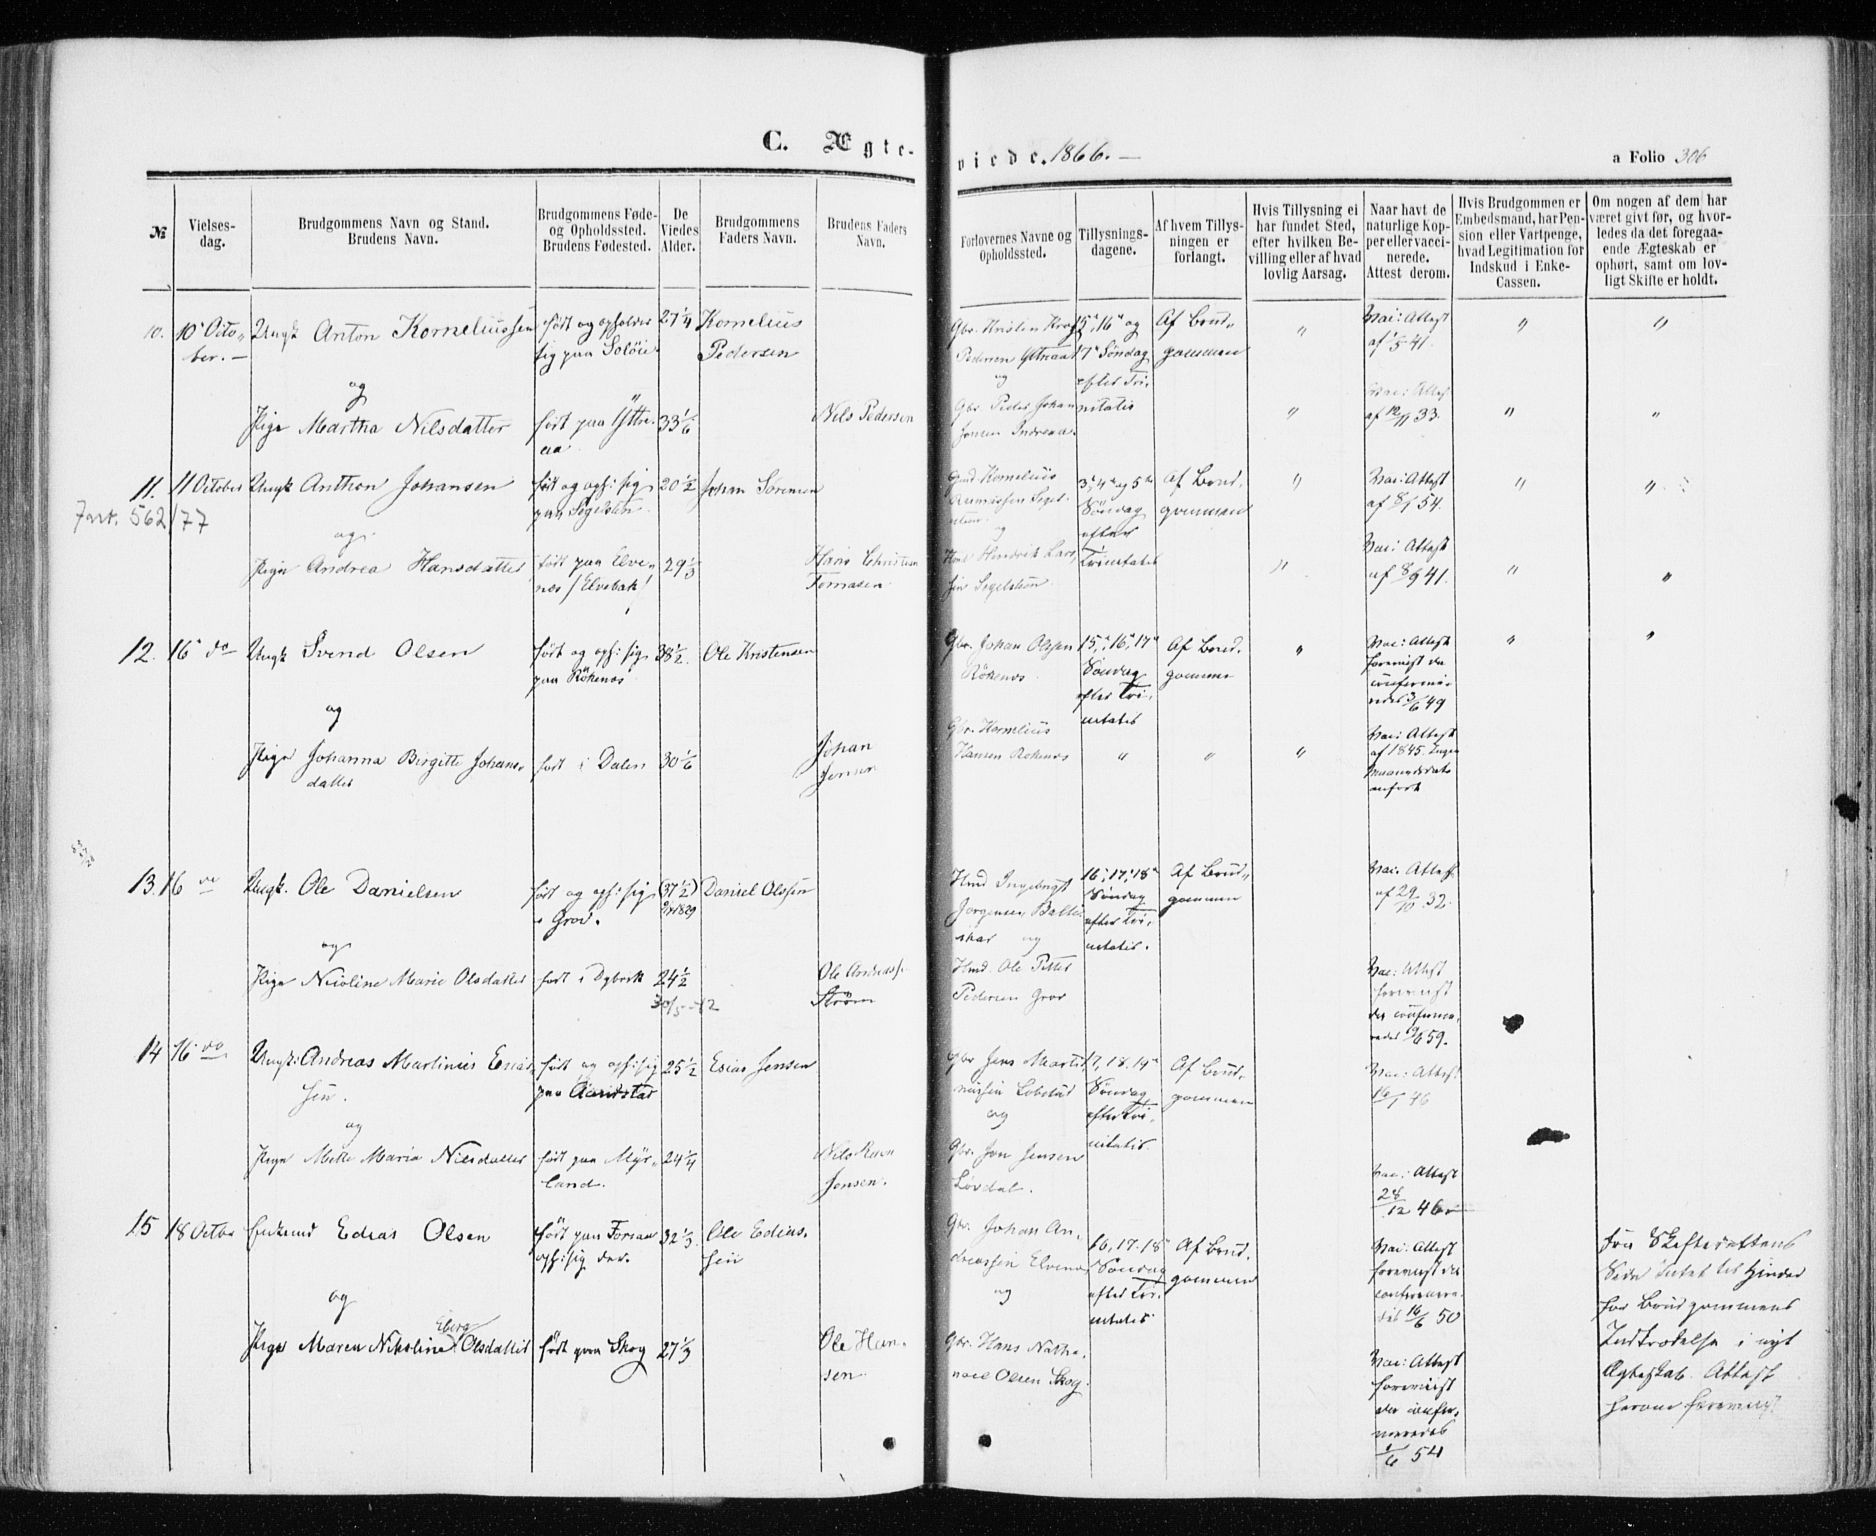 C. Ægte-
viede. 1866. —
a Folio 306
№
Vielses-
dag.
Brudgommens Navn og Stand.
Brudens Navn.
Brudgommens Føde-
og Opholdssted.
Brudens Fødested.
De
Viedes
Alder.
Brudgommens
Faders Navn.
Brudens Faders
Navn.
Forlovernes Navne og
Opholdssted.
Tillysnings-
dagene.
Af hvem Tillys-
ningen er
forlangt.
Hvis Tillysning ei
har fundet Sted,
efter hvilken Be-
villing eller af hvad
lovlig Aarsag.
Naar havt de
naturlige Kop-
per eller vacci-
nerede.
Attest derom.
Hvis Brudgommen er
Embedsmand, har Pen-
sion eller Vartpenge,
hvad Legitimation for
Indskud i Enke-
Cassen.
Om nogen af dem har
været givt før, og hvor-
ledes da det foregaa-
ende Ægteskab er
ophørt, samt om lov-
ligt Skifte er holdt.
10.
10' Octo-
ber. —
Ungk Anton Korneliussen
og
Pige Martha Nilsdatter
født og opholder
sig paa Soløie
født paa Yttre-
aa.
27 1/4
33 1/6
Kornelius
Pedersen
Nils Pedersen
Gbr. Kristen Krog
Pedersen Yttreaa
og
Gbr. Peder Johan
Jensen Indreaa
15', 16' og
17' Søndag
efter Tri-
nitatis
Af Brud-
gommen
Vac: Attest
af 41.
Vac: Attest
af 12/11 33.
11.
11 October
Ungk Anthon Johansen
og
Pige Andrea Hansdatter
født og oph: sig
paa Segelsten
født paa Elve-
nes / Elvebak /
20 1/2
29 1/3
Johan Sørensen
Hans Christian
Tomasen
Kornelius
og
Hmd Hendrik Lars-
sen
3', 4' og 5te
Søndag
efter
Trinitatis
Af Brud-
gommen
Vac: Attest
af 54.
Vac: Attest
af 8/9 41.
562/77
12.
16' do
Ungk Svend Olsen
og
Pige Johanna Birgitte Johans-
datter
født og oph: sig
paa Røkenes
født i Dalen
38 1/2
30 1/6
Ole Kristensen
Johan
Jensen
Gbr. Johan Olsen
Røkenes
Gbr. Kornelius
Hansen Røkenes
15', 16', 17'
Søndag
efter Tri-
nitatis
Af Brud-
gommen
Vac: Attest
forevist da
confirme-
redes 3/6 49
Vac: Attest
af 1845. Ingen
Maanedsdato
anført
13.
16 do
Ungk. Ole Danielsen
og
Pige Nicoline Marie Olsdatter
født og oph: sig
i Grov.
født i Dybvik
(37 1/2)
1829
24 1/2
30/5 - 42
Daniel Olsen
Ole Andreass.
Strøm
Hmd Ingebrigt
Jørgensen Balte-
skar og
Hmd. Ole Petter
Pedersen Grov
16', 17', 18'
Søndag
efter Tri-
nitatis.
Af Brud-
gommen
Vac. Attest.
af 29/10 32.
Vac: Attest
forevist
da confirme-
redes 59.
14
16 do
Ungk: Andreas Martinius Esias-
sen.
og
Pige Mette Maria Nilsdatter
født og oph: sig
paa Aandstad
født paa Myr-
land.
25 1/2
24 1/4
Esias Jensen
Nils Ravn
Jensen.
Gbr Jens Marti-
nussen
og
Gbr. Jon Jensen
Løvdal.
17, 18. 19'
Søndag
efter Tri-
nitatis.
Af Brud-
gommen
Vac: Attest
16/1 46
Vac: Attest
28/12 46
15
18 Octbr
Enkemd Edias Olsen
og
Pige Maren Nikoline Olsdatter
Eberg
født paa Forsaa
oph: sig der.
født paa Skog
32 1/3
27 1/3
Ole Edias-
sen
Ole Han-
sen
Gbr. Johan An-
dreassen Elvenes
og
Gbr. Hans Natha-
nael Olsen Skog.
16, 17. 18'
Søndag
efter Tri-
nitatis
Af Brud-
gommen
Vac: Attest
forevist da
confirmere-
des 16/6 50
Vac: Attest
forevist
da confir-
meredes
1/6 54
Fra Skifterettens
Side Intet til Hinder
for Brudgommens
Indtrædelse i nyt
Ægteskab. Attest
herom forevist.